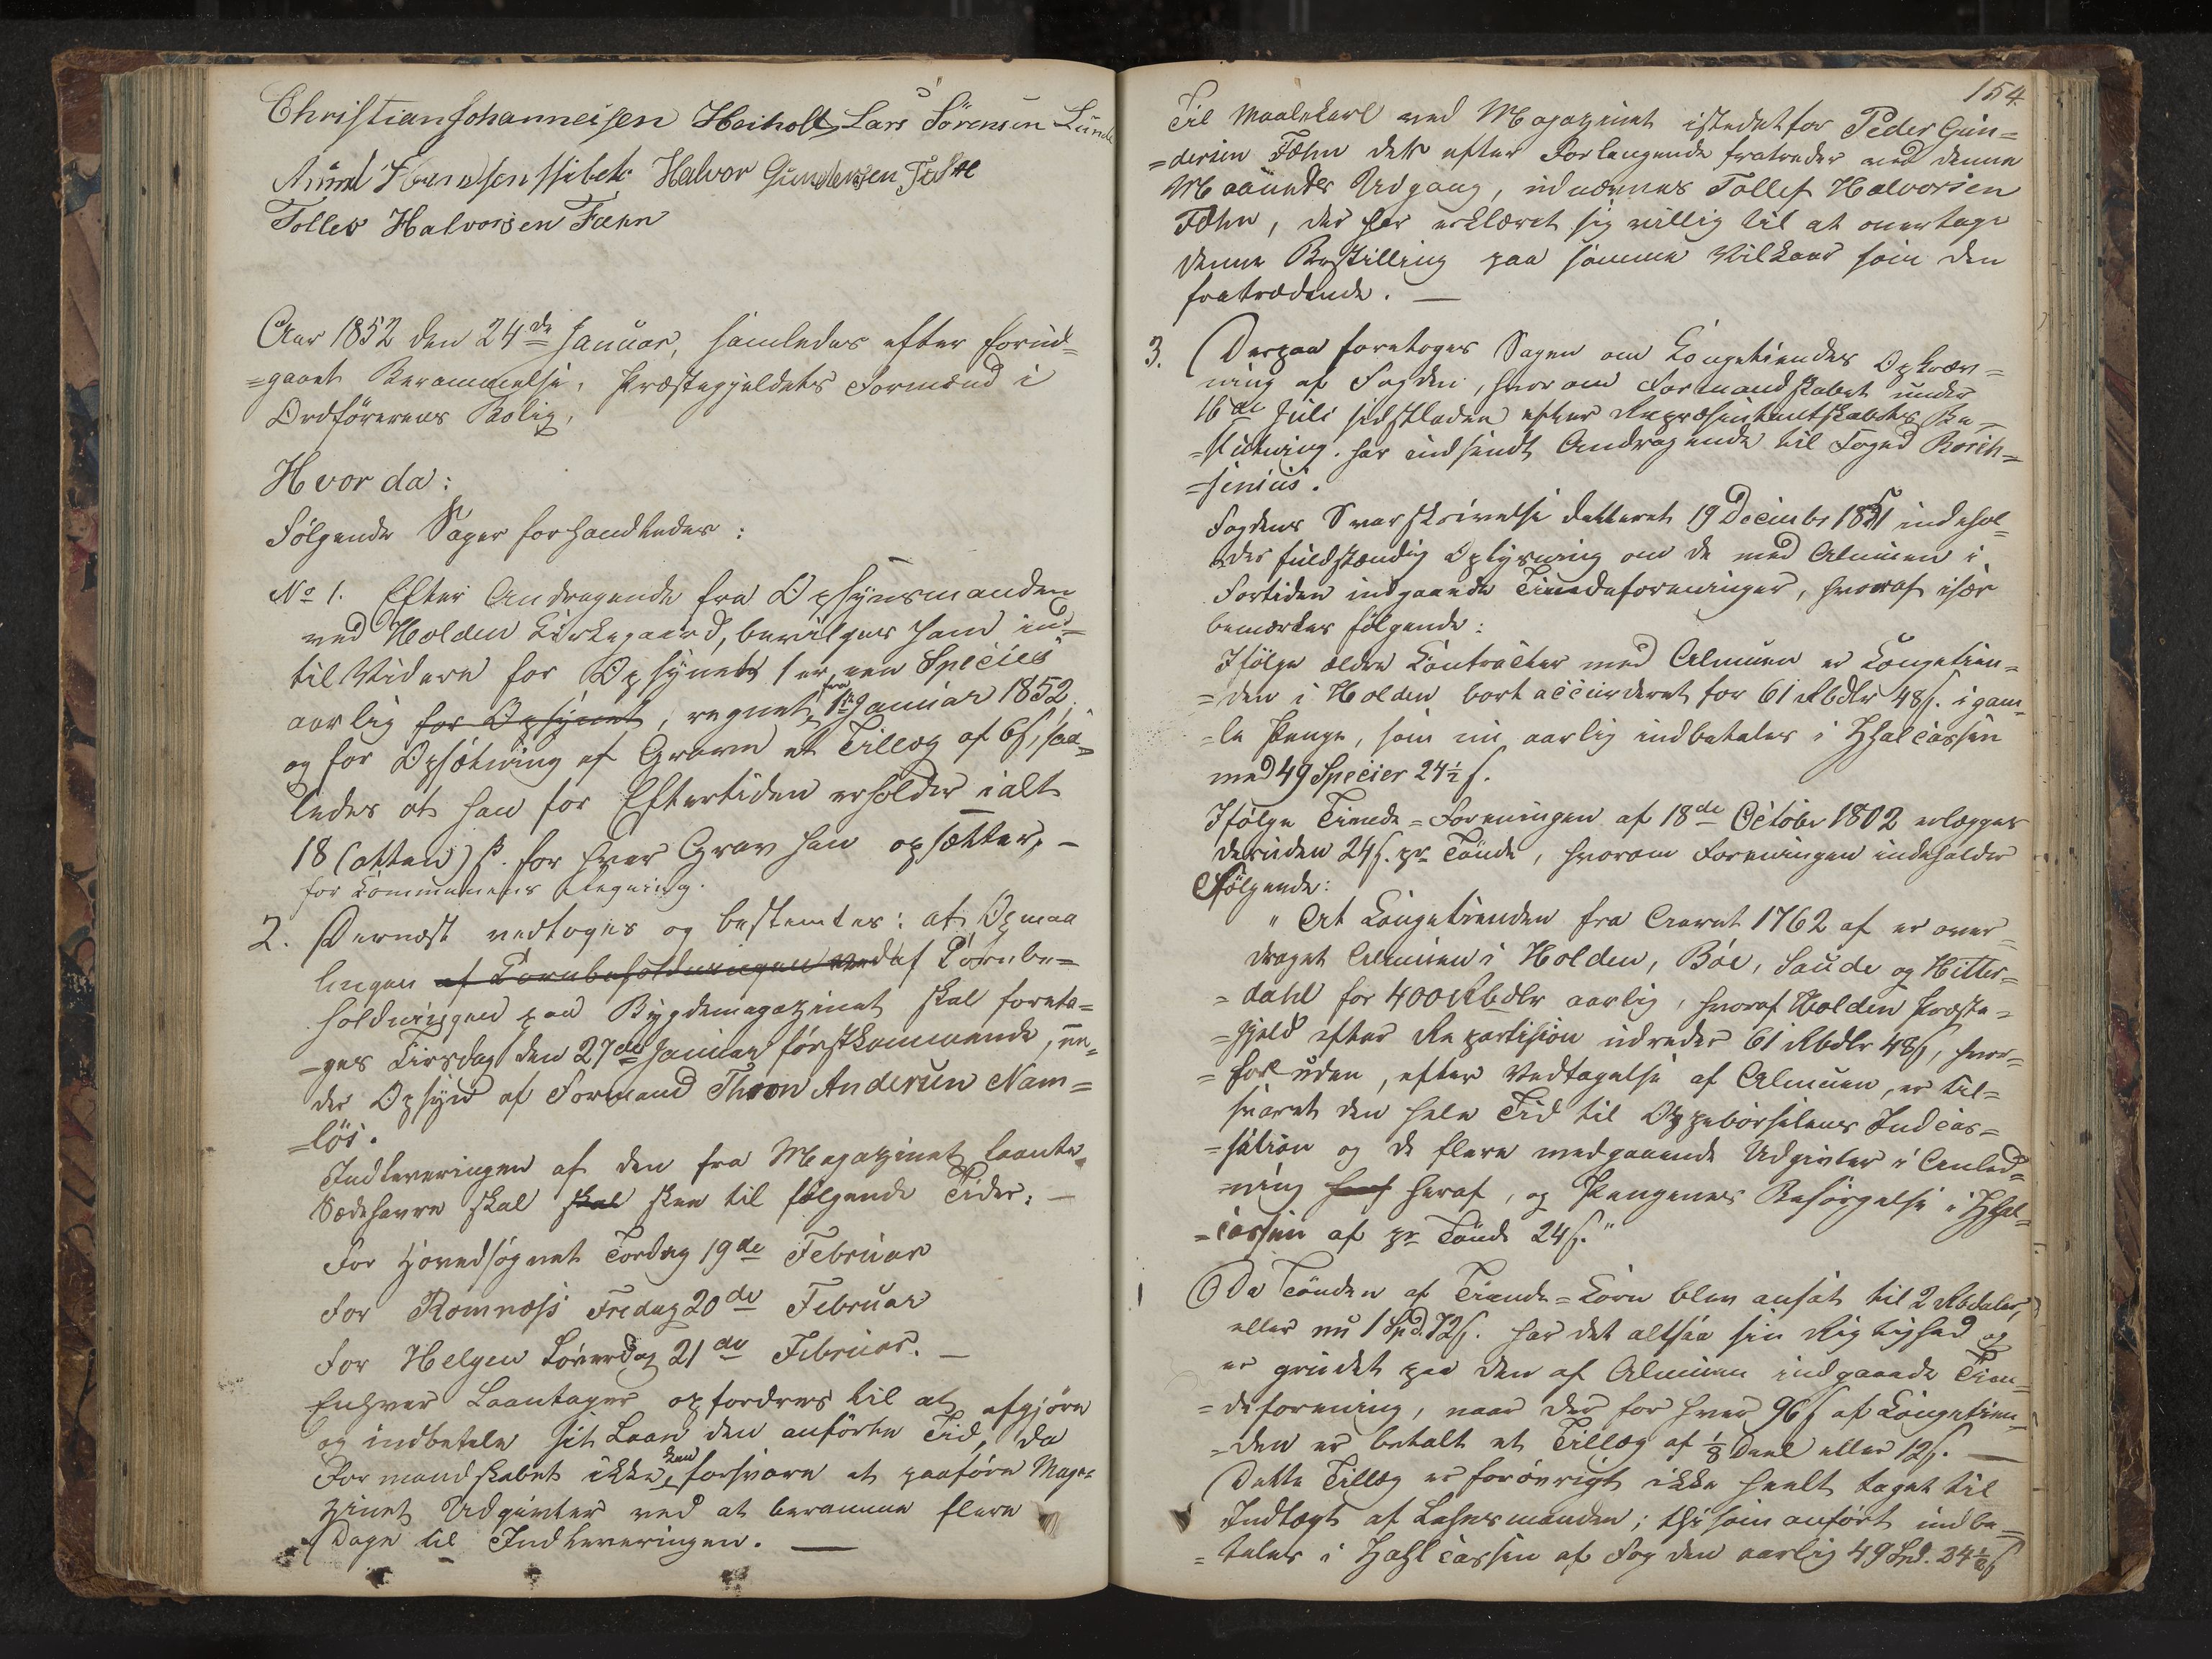 Christian Johannesen Heiholt Lars Sörensen Lunde
Halvor Gundersen Fæhn
Tollev Halvorsen Fæhn
Aar 1852 den 24de Januar, samledes efter forud=
=gaaet Berammelse, Præstegjeldets Formænd i
Ordförerens Bolig,
Hvor da:
Følgende Sager forhandledes:
No 1. Efter Andragende fra Opsynsmanden
ved Holden Kirkegaard, bevilges ham ind=
til Videre for Opsynet 1 er, een Species
aarlig for Opsynet, regnet fra 1ste Januar 1852,
og for Opsætning af Grave et Tillæg af 6 ß, saa=
ledes at han for Eftertiden erholder ialt
18 (atten) ß. for hver Grav han opsætter, –
for Kommunens Regning.
2. Dernæst vedtoges og bestemtes: at Opmaa
lingen af Kornbeholdningen ved af Kornbe=
holdningen paa Bygdemagazinet skal foreta=
=ges Tirsdag den 27de Januar förstkommende, un=
der Opsyn af Formand Thron Andersen Nam=
=lös.
Indleveringen af den fra Magazinet laante
Sædehavre skal skal skee til følgende Tider: –
For Hovedsognet Torsdag 19de Februar
For Romnæss Fredag 20de Februar
For Helgen Löverdag 21de Februar. –
Enhver Laantager opfordres til at afgjöre
og indbetale sit Laan den anførte Tid, da
Formandskabet ikke kan forsvare at paaföre Maga=
zinet Udgivter ved at beramme flere
Dage til Indleveringen. —
154.
Til Maalekarl ved Magazinet istedetfor Peder Gun=
=dersen Fæhn der efter Forlangende fratræder ved denne
Maaneds Udgang, udnævnes Tollef Halvorsen
Fæhn, der har erklæret sig villig til at overtage
denne Bestilling paa samme Vilkaar som den
fratrædende. —
3. Derpaa foretoges Sagen om Kongetiendes Opkræv=
ning af Fogden, hvorom Formandskabet under
16de Juli sidstleden efter Repræsentantskabets Be=
=slutning har indsendt Andragende til Foged Rosen=
=senius.
Fogdens Svarskrivelse datteret 19 Decembr 1851 indehol=
der fuldstændig Oplysning om de med Almuen i
Fortiden indgaaede Tiendeforeninger, hvoraf især
bemærkes følgende:
Ifölge ældre Contracter med Almuen er Kongetien=
=den i Holden bortaccorderet for 61 Rbdlr 48 ß. i gam=
=le Penge, som nu aarlig indbetales i Zhalcassen
med 49 Species 24½ ß.
Ifölge Tiende=Foreningen af 18de Octobr 1802 erlægges
desuden 24 ß. pr Tönde, hvorom Foreningen indeholder
Følgende:
"At Kongetienden fra Aaret 1762 af er over=
draget Almuen i Holden, Böe, Saude og Hitter=
=dahl for 400 Rbdlr aarlig, hvoraf Holden Præste=
=gjeld efter Repartision udreder 61 Rbdlr 48 ß, hvor=
=for uden, efter Vedtagelse af Almuen, er til=
svaret den hele Tid til Oppebörselens Indcas=
=sation og de flere medgaaende Udgivter i Anled=
=ning heraf, og Pengenes Besörgelse i Zhal=
=cassen af pr Tönde 24 ß."
Da Tönden af Tiende=Korn blev ansat til 2 Rbdaler,
eller nu 1 Spd. 72 ß. har det altsaa sin Rigtighed og
er grundet paa den af Almuen indgaaede Tien=
=deforening, naar der for hver 96 ß af Kongetien=
=den er betalt et Tillæg af 1/8 Deel eller 12 ß. —
Dette Tillæg er forövrigt ikke heelt taget til
Indtægt af Lehnsmanden; thi som anfört indbe=
=tales i Zahlcassen af Fogden aarlig 49 Spd. 24½ ß